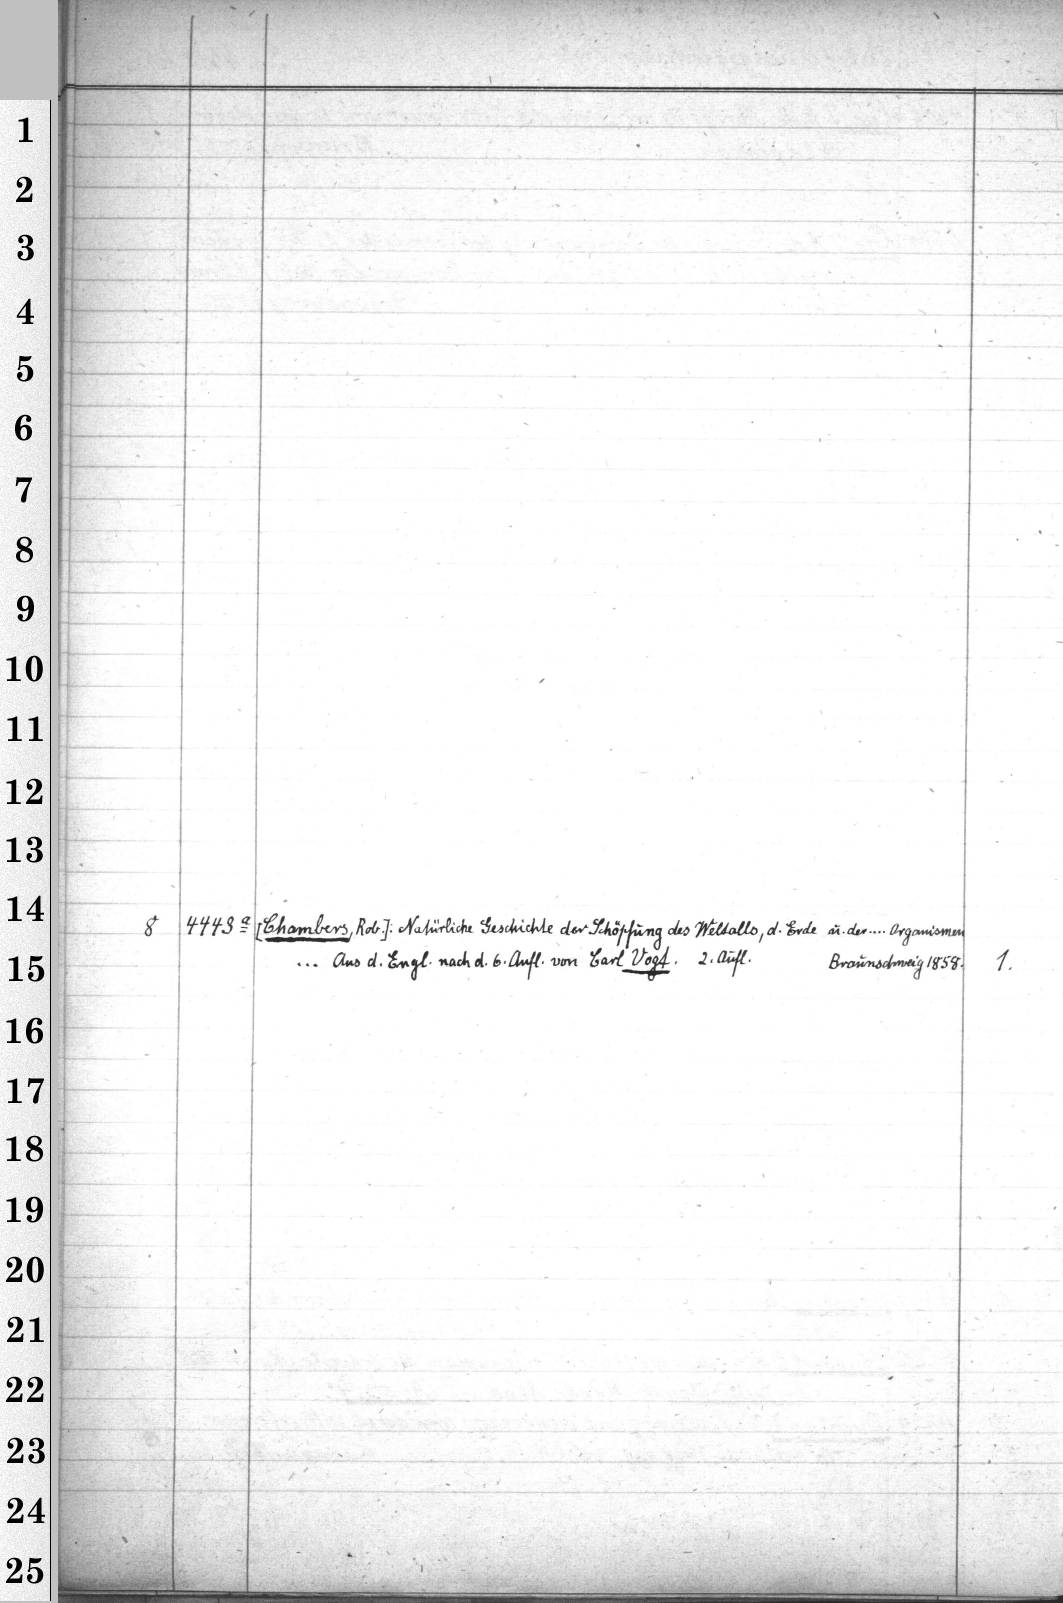 1
2
3
4
5
6
7
8
9
10
11
12
13
14
8 4443 a [Chambers, Rob.]: Natürliche Geschichte der Schöpfung des Weltalls, d. Erde u. der .... Organismen
15
... Aus d. Engl. nach d. 6. Aufl. von Carl Vogt. 2. Aufl. Braunschweig 1858. 1.
16
17
18
19
20
21
22
23
24
25